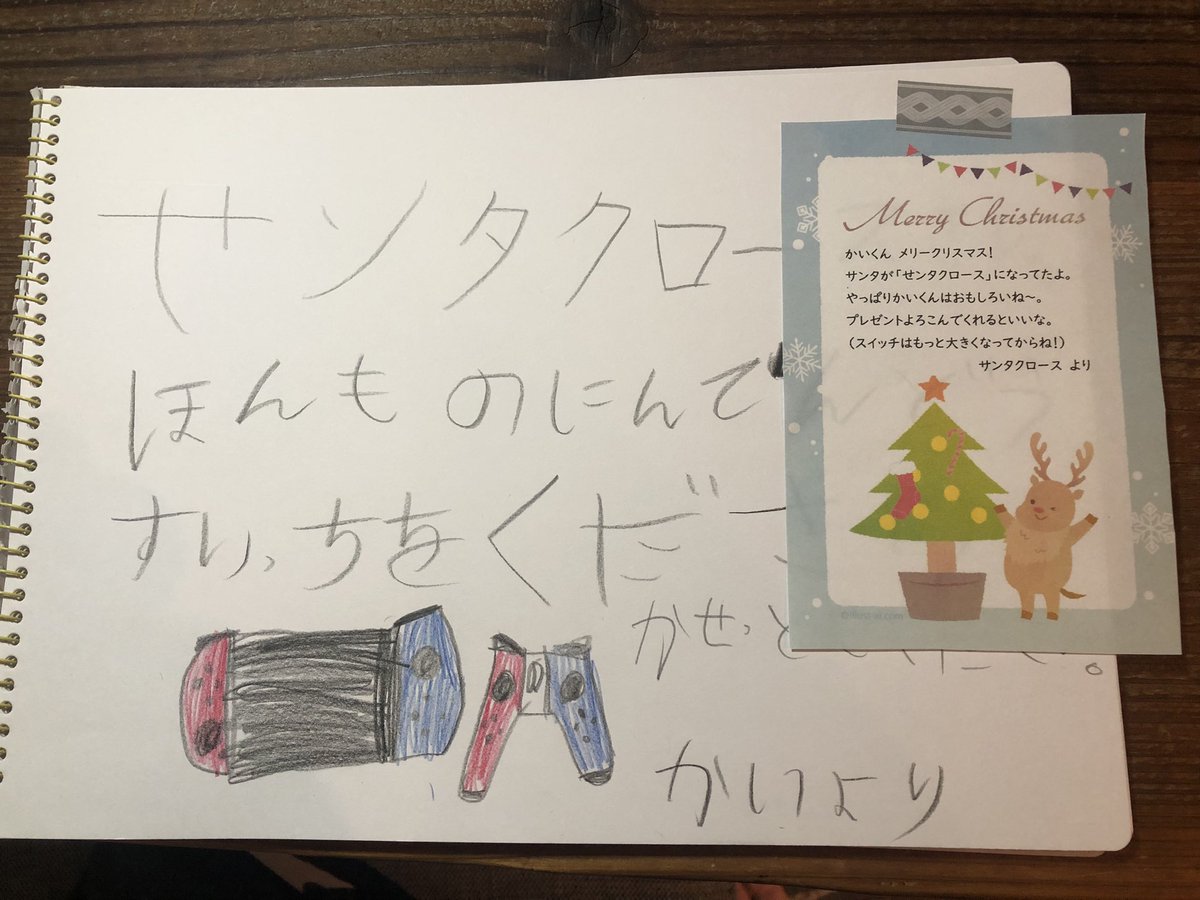 せンタクロー
ほんものにんてん
すいっちをくださ
かせっと
かいより
Merry Christmas
かいくん メリークリスマス!
サンタが「せンタクロース」になってたよ。
やっぱりかいくんはおもしろいね〜。
プレゼントよろこんでくれるといいな。
(スイッチはもっと大きくなってからね!)
サンタクロース より